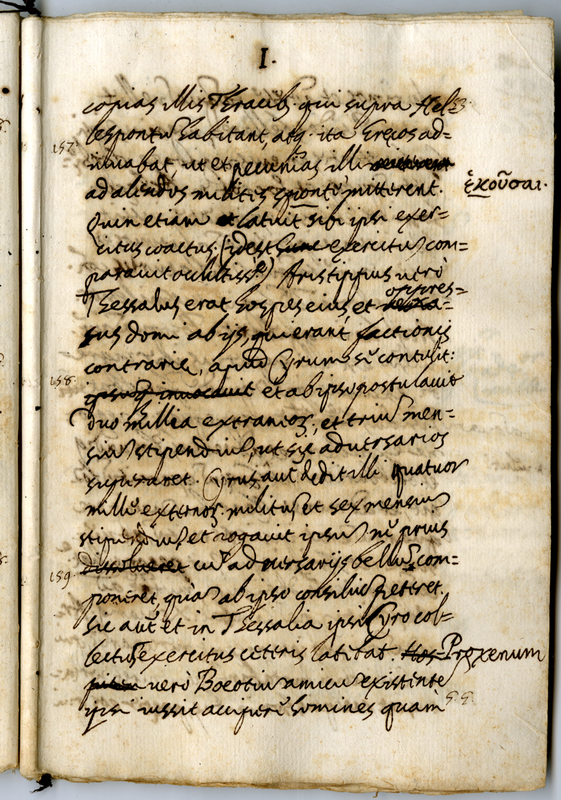 I.
copias illis Thracib. qui supra Hel=
lespontũ habitant, atq. ita Grecos ad=
157
iuvabat, ut et pecunias illi
ad alendos milites sponte mitterent.
ἑκοῦσαι.
Quin etiam latuit sibi ipsi exer=
citus coactus: (idest exercitũ com=
paravit occultiss.e) Aristippus verò
Thessalus erat hospes eius, et oppres=
sus domi ab ijs, qui erant factionis
contrariæ, apud Cyrum sẽ contulit:
158.
ipsũq. invocavit et ab ipso postulavit
duo millia extraneor., et triũ men=
siũ stipendiũ, ut sic adversarios
superaret. Cyrus aut. dedit illi quatuor
mille externos milites, et sex mensiũ
stipendiũ, et rogavit ipsũ, nẽ prius
159.
dissolveret cũ adversarijs bellũ com=
poneret, quàm ab ipso consiliũ peteret.
sic aut. et in Thessalia ipsi Cyro col=
lectus exercitus ceteris latebat. Hos= Proxenum
pitem verò Boeotiũ amicũ existente
ipsi iussit accipere homines quam